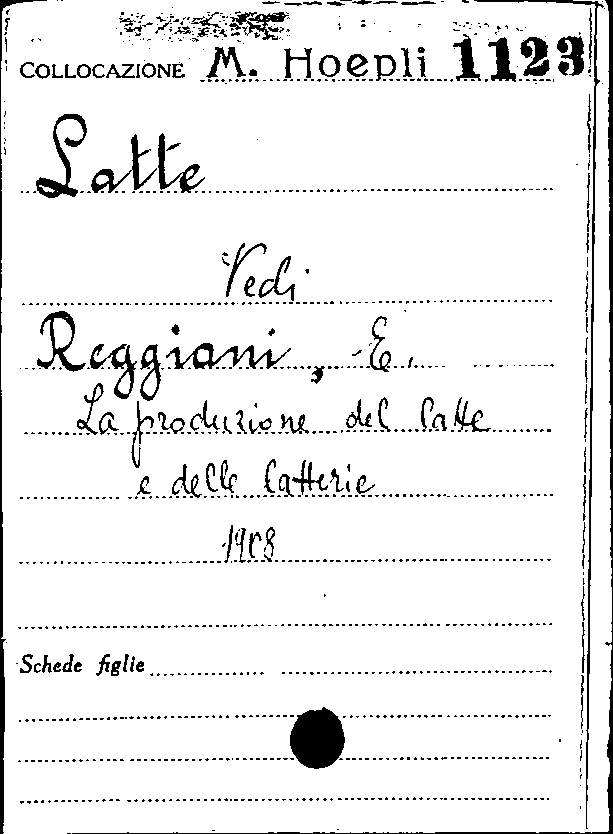 COLLOCAZIONE M. Hoepli 1123
Latte
Vedi
Reggiani, E.
La produzione del latte
e delle latterie
1908
Schede figlie